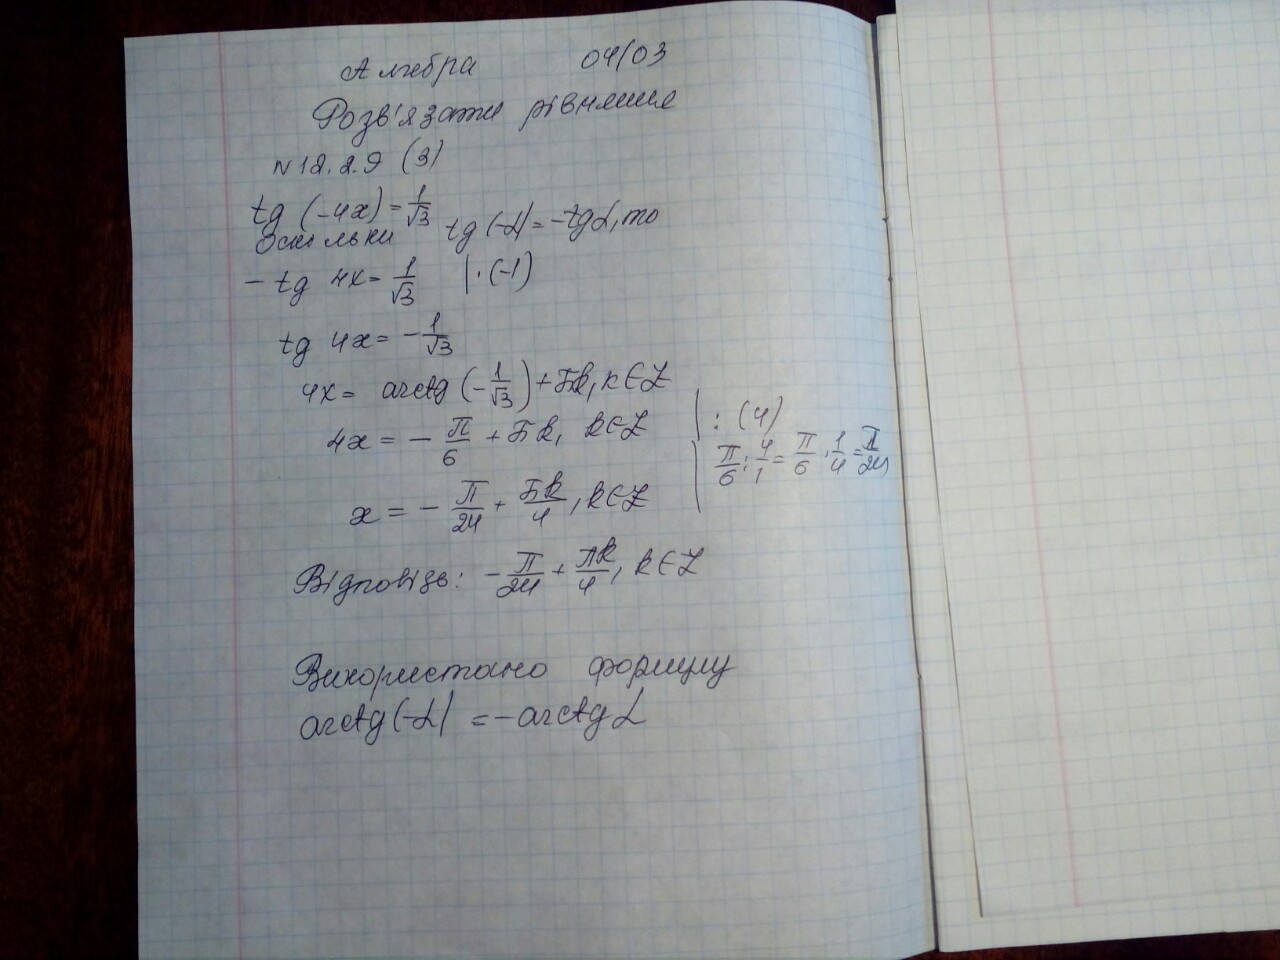 Алгебра 04/03
Розв'язати рівняння
N 12.2.9 (3)
tg (-4x) = 1/√3
Оскільки tg (-α) = -tg α, то
- tg 4x = 1/√3 | · (-1)
tg 4x = - 1/√3
4x = arctg (- 1/√3) + πk, k ∈ Z
4x = - π/6 + πk, k ∈ Z | : (4)
π/6 : 4/1 = π/6 · 1/4 = π/24
x = - π/24 + πk/4, k ∈ Z
Відповідь: - π/24 + πk/4, k ∈ Z
Використано формулу
arctg (-α) = - arctg α